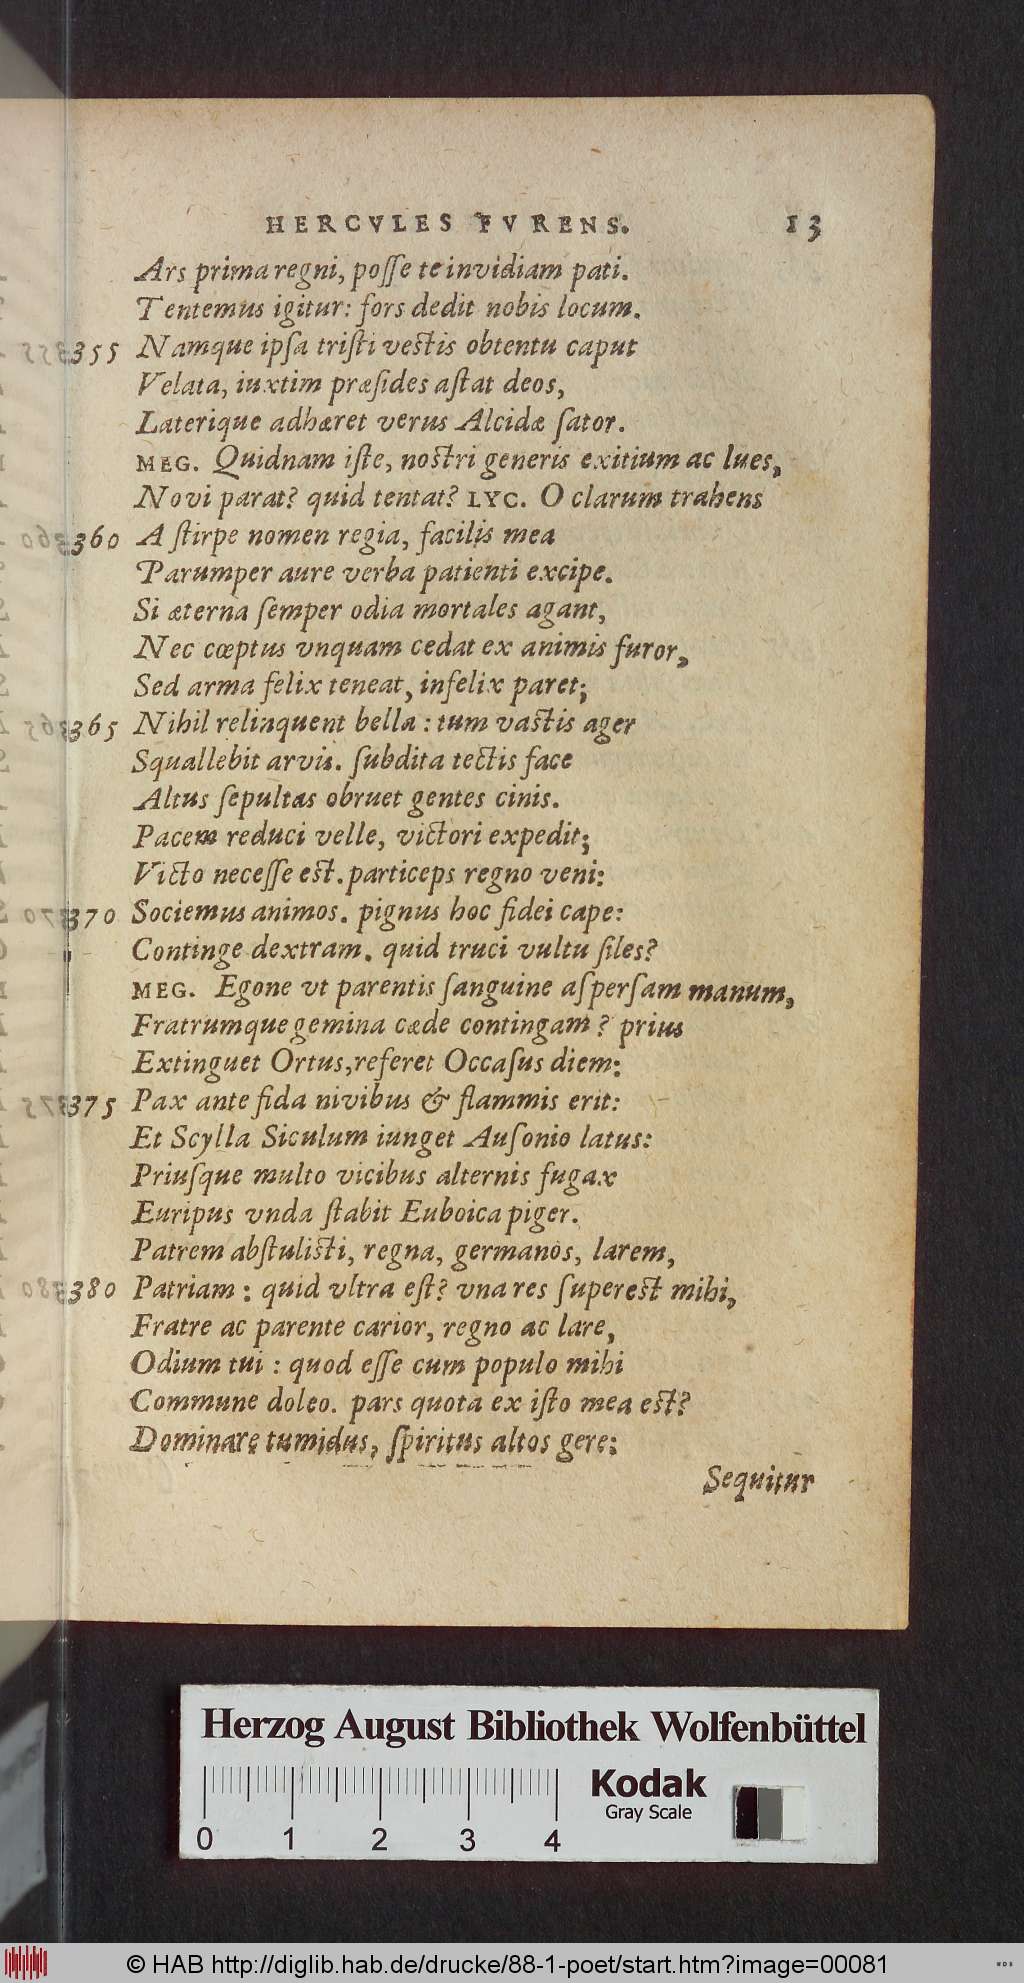 HERCVLES FVRENS. 13
Ars prima regni, poſſe te invidiam pati.
Tentemus igitur: fors dedit nobis locum.
355 Namque ipſa triſti veſtis obtentu caput
Velata, iuxtim præſides aſtat deos,
Laterique adhæret verus Alcidæ ſator.
MEG. Quidnam iſte, noſtri generis exitium ac lues,
Novi parat? quid tentat? LYC. O clarum trahens
360 A ſtirpe nomen regia, facilis mea
Parumper aure verba patienti excipe.
Si æterna ſemper odia mortales agant,
Nec cœptus vnquam cedat ex animis furor,
Sed arma felix teneat, infelix paret;
365 Nihil relinquent bella: tum vaſtis ager
Squallebit arvis. ſubdita tectis face
Altus ſepultas obruet gentes cinis.
Pacem reduci velle, victori expedit;
Victo neceſſe eſt. particeps regno veni:
370 Sociemus animos. pignus hoc fidei cape:
Continge dextram. quid truci vultu ſiles?
MEG. Egone vt parentis ſanguine aſperſam manum,
Fratrumque gemina cæde contingam? prius
Extinguet Ortus, referet Occaſus diem:
375 Pax ante fida nivibus & flammis erit:
Et Scylla Siculum iunget Auſonio latus:
Priuſque multo vicibus alternis fugax
Euripus vnda ſtabit Euboica piger.
Patrem abſtuliſti, regna, germanos, larem,
380 Patriam: quid vltra eſt? vna res ſupereſt mihi,
Fratre ac parente carior, regno ac lare,
Odium tui: quod eſſe cum populo mihi
Commune doleo. pars quota ex iſto mea eſt?
Dominare tumidus, ſpiritus altos gere:
Sequitur
Herzog August Bibliothek Wolfenbüttel
Kodak
Gray Scale
0 1 2 3 4
© HAB http://diglib.hab.de/drucke/88-1-poet/start.htm?image=00081